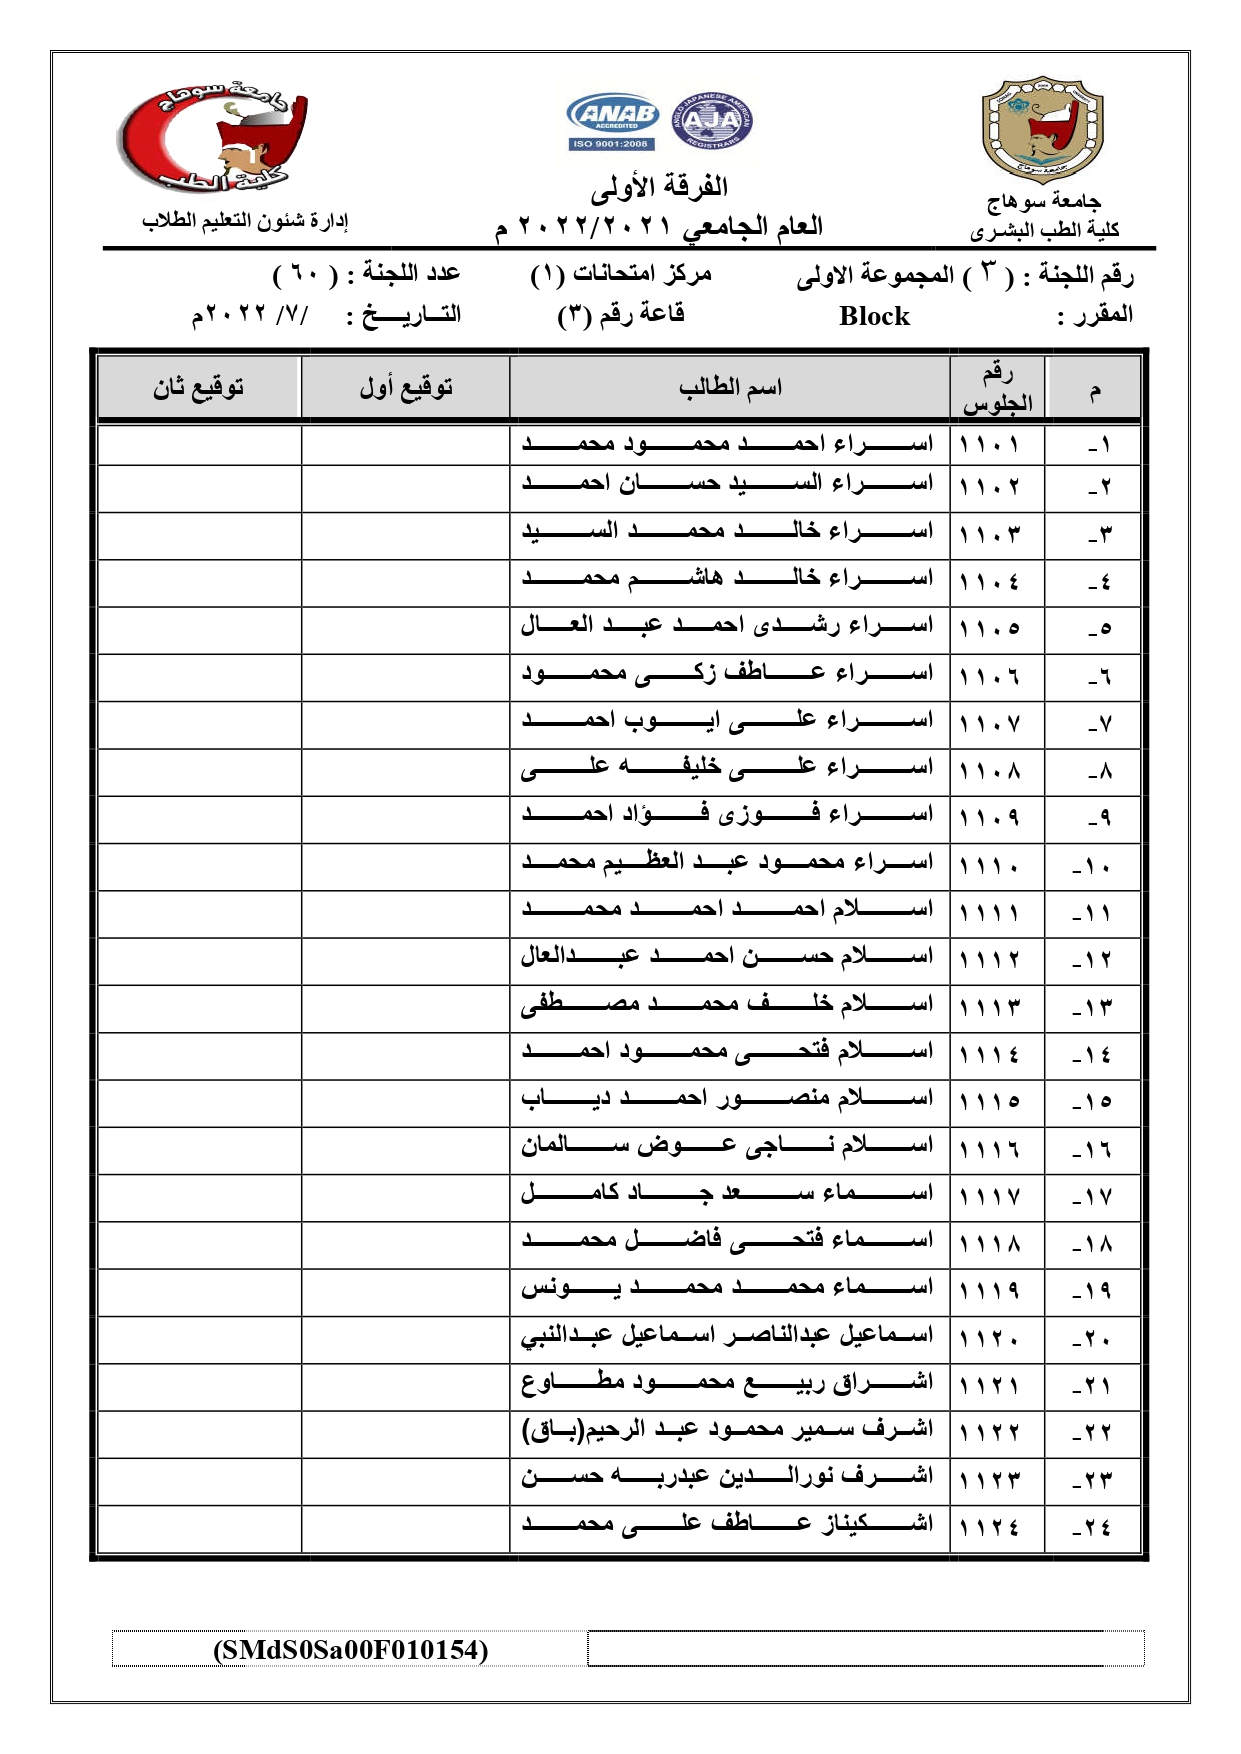 جامعة سوهاج
كلية الطب
ANAB
ACCREDITED
ISO 9001:2008
ANGLO JAPANESE AMERICAN
AJA
REGISTRARS
جامعة سوهاج
جامعة سوهاج
كلية الطب البشرى
الفرقة الأولى
العام الجامعي ٢٠٢٢/٢٠٢١ م
إدارة شئون التعليم الطلاب
رقم اللجنة : ( ٣ ) المجموعة الاولى مركز امتحانات (١) عدد اللجنة : ( ٦٠ )
المقرر : Block قاعة رقم (٣) التـــاريـــخ : /٧/ ٢٠٢٢م
م رقم الجلوس اسم الطالب توقيع أول توقيع ثان
١- ١١٠١ اسراء احمد محمود محمد
٢- ١١٠٢ اسراء السيد حسان احمد
٣- ١١٠٣ اسراء خالد محمد السيد
٤- ١١٠٤ اسراء خالد هاشم محمد
٥- ١١٠٥ اسراء رشدى احمد عبد العال
٦- ١١٠٦ اسراء عاطف زكى محمود
٧- ١١٠٧ اسراء على ايوب احمد
٨- ١١٠٨ اسراء على خليفه على
٩- ١١٠٩ اسراء فوزى فؤاد احمد
١٠- ١١١٠ اسراء محمود عبد العظيم محمد
١١- ١١١١ اسلام احمد احمد محمد
١٢- ١١١٢ اسلام حسن احمد عبدالعال
١٣- ١١١٣ اسلام خلف محمد مصطفى
١٤- ١١١٤ اسلام فتحى محمود احمد
١٥- ١١١٥ اسلام منصور احمد دياب
١٦- ١١١٦ اسلام ناجى عوض سالمان
١٧- ١١١٧ اسماء سعد جاد كامل
١٨- ١١١٨ اسماء فتحى فاضل محمد
١٩- ١١١٩ اسماء محمد محمد يونس
٢٠- ١١٢٠ اسماعيل عبدالناصر اسماعيل عبدالنبي
٢١- ١١٢١ اشراق ربيع محمود مطاوع
٢٢- ١١٢٢ اشرف سمير محمود عبد الرحيم(باق)
٢٣- ١١٢٣ اشرف نورالدين عبدربه حسن
٢٤- ١١٢٤ اشكيناز عاطف على محمد
(SMdS0Sa00F010154)